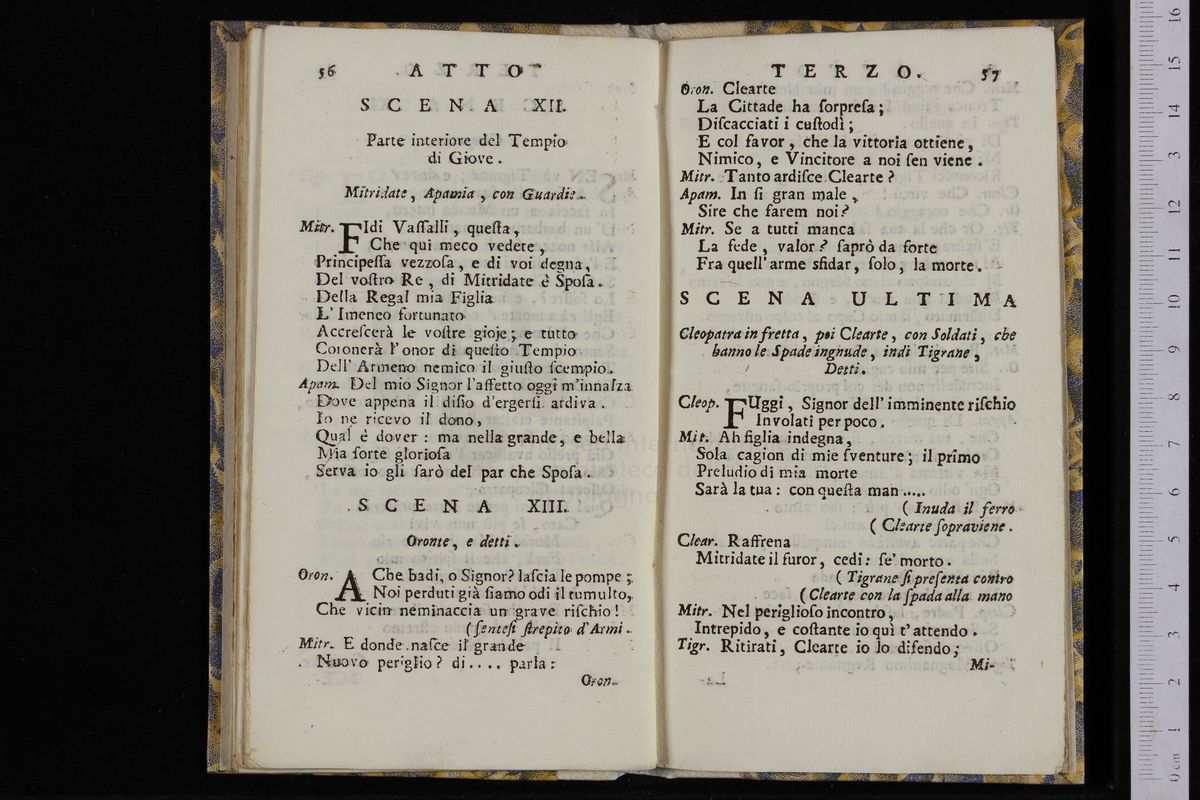 56 ATTO
SCENA XII.
Parte interiore del Tempio
di Giove.
Mitridate, Apamia, con Guardie.
Mitr. FIdi Vaſſalli, queſta,
Che qui meco vedete,
Principeſſa vezzoſa, e di voi degna,
Del voſtro Re, di Mitridate è Spoſa.
Della Regal mia Figlia
L' Imeneo fortunato
Accreſcerà le voſtre gioje; e tutto
Coronerà l'onor di queſto Tempio
Dell' Armeno nemico il giuſto ſcempio.
Apam. Del mio Signor l'affetto oggi m'innalza
Dove appena il diſio d'ergerſi ardiva.
Io ne ricevo il dono,
Qual è dover: ma nella grande, e bella
Mia ſorte glorioſa
Serva io gli ſarò del par che Spoſa.
SCENA XIII.
Oronte, e detti.
Oron. A Che badi, o Signor? laſcia le pompe;
Noi perduti già ſiamo odi il tumulto,
Che vicin neminaccia un grave riſchio!
(ſenteſi ſtrepito d'Armi.
Mitr. E donde naſce il grande
Nuovo periglio? di.... parla:
Oron.
TERZO. 57
Oron. Clearte
La Cittade ha ſorpreſa;
Diſcacciati i cuſtodì;
E col favor, che la vittoria ottiene,
Nimico, e Vincitore a noi ſen viene.
Mitr. Tanto ardiſce Clearte?
Apam. In ſi gran male,
Sire che farem noi?
Mitr. Se a tutti manca
La fede, valor? ſaprò da forte
Fra quell'arme sfidar, ſolo, la morte.
SCENA ULTIMA
Cleopatra in fretta, poi Clearte, con Soldati, che
hanno le Spade ingnude, indi Tigrane,
Detti.
Cleop. FUggi, Signor dell'imminente riſchio
Involati per poco.
Mit. Ah figlia indegna,
Sola cagion di mie ſventure; il primo
Preludio di mia morte
Sarà la tua: con queſta man.....
(Inuda il ferro
(Clearte ſopraviene.
Clear. Raffrena
Mitridate il furor, cedi: ſe' morto.
(Tigrane ſi preſenta contro
(Clearte con la ſpada alla mano
Mitr. Nel periglioſo incontro,
Intrepido, e coſtante io quì t'attendo.
Tigr. Ritirati, Clearte io lo difendo;
Mi-
0 cm 1 2 3 4 5 6 7 8 9 10 11 12 13 14 15 16